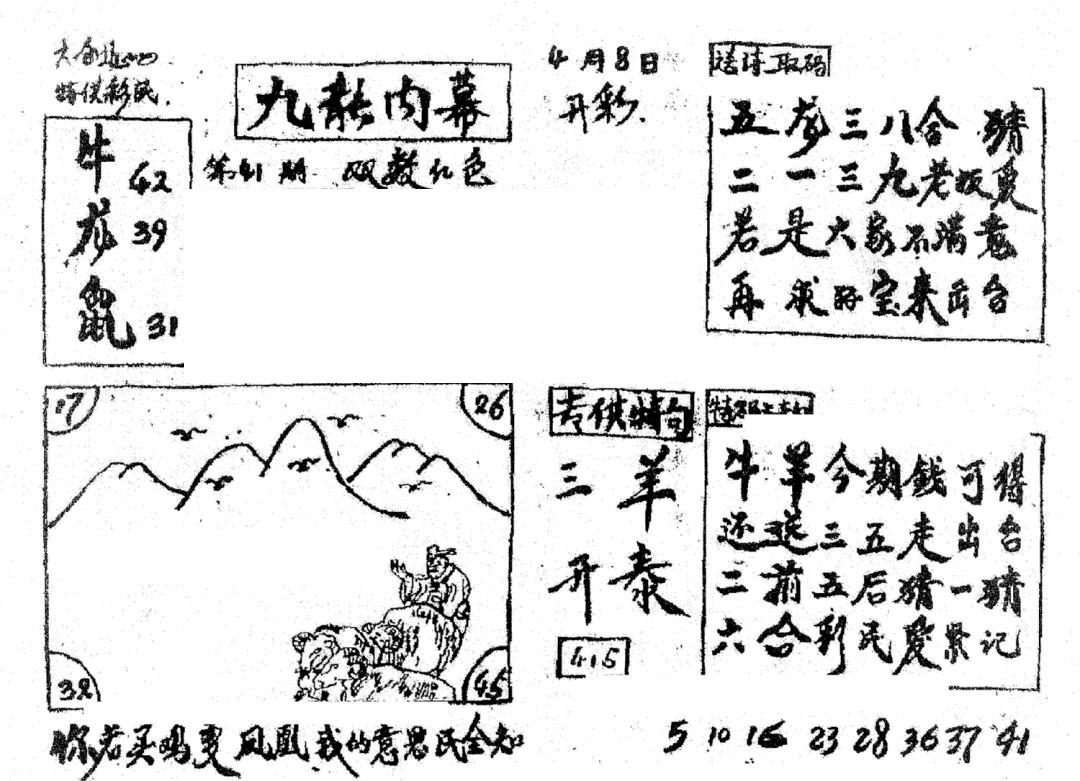 特供彩民.
九龙内幕
4月8日
开彩.
送诗取码
第41期 双数红色
牛 42
龙 39
鼠 31
五龙三八合 猜
二一三九老板觅
若是大家不满意
再求好宝来出台
17 26
38 45
专供特句
三羊
开泰
415
牛羊今期钱可得
还送三五走出台
二前五后猜一猜
六合彩民爱紧记
你若买鸡变凤凰我的意思民全知
5 10 16 23 28 36 37 41